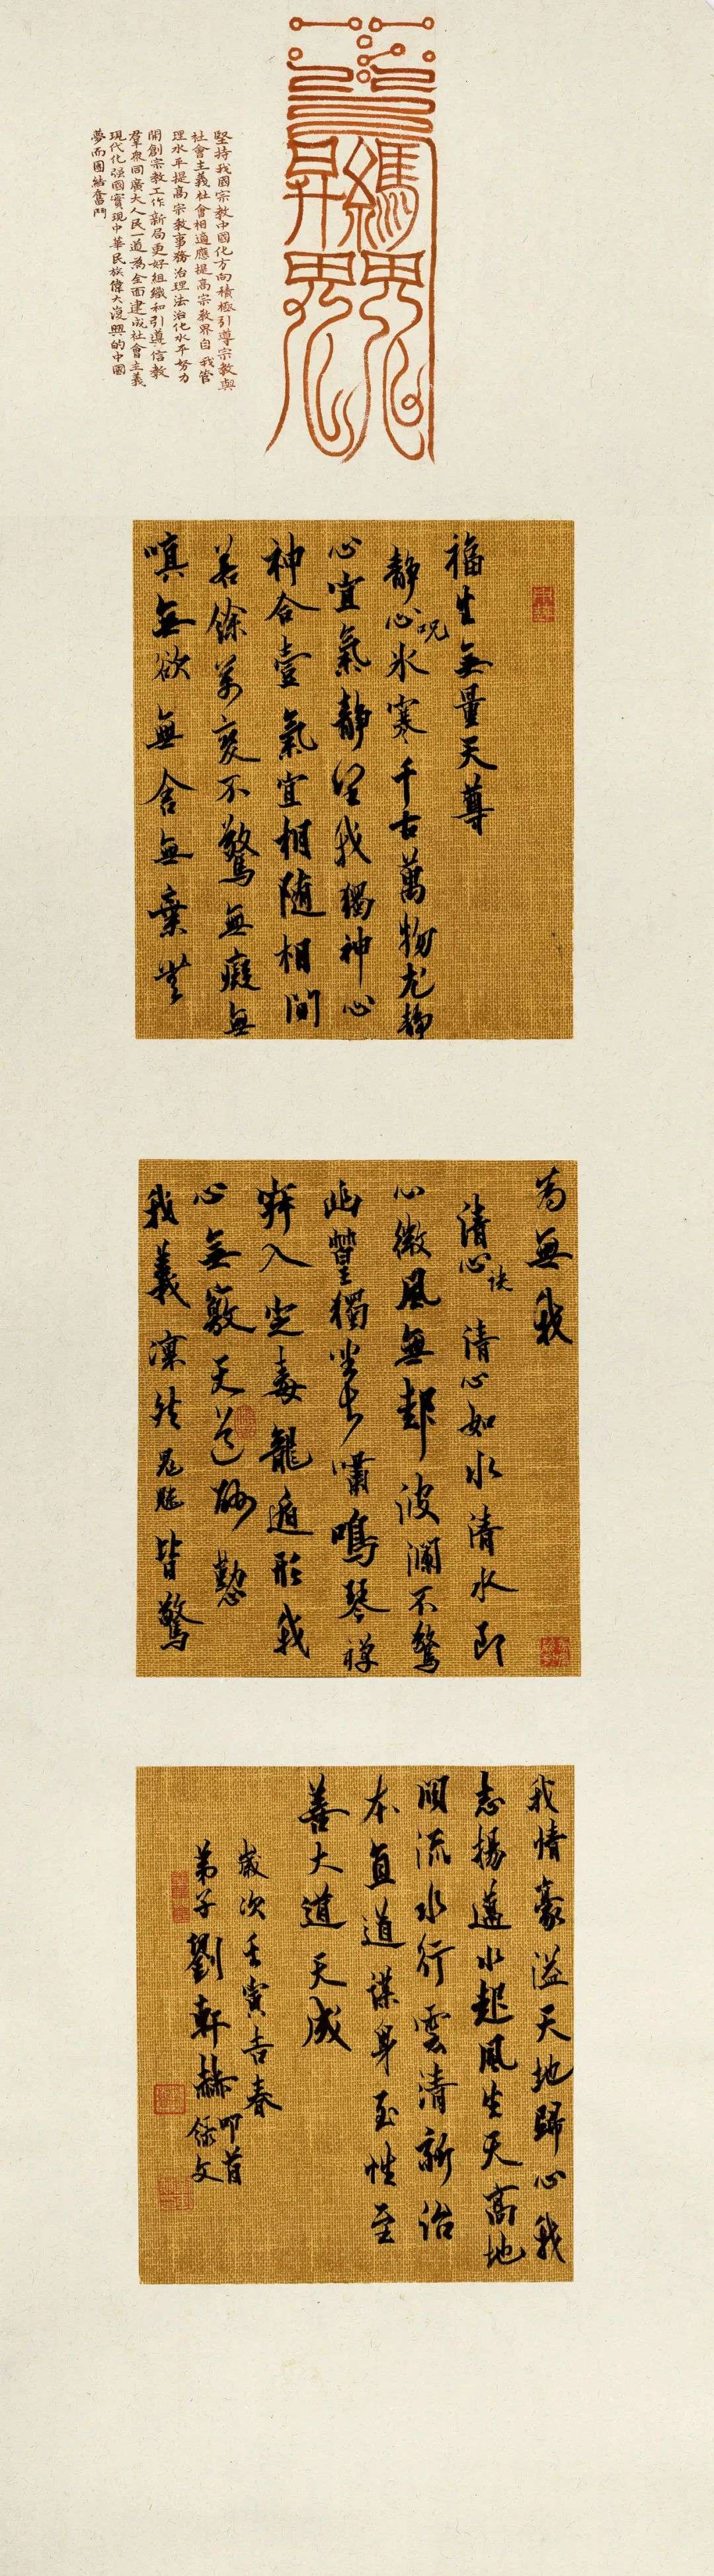 堅持我國宗教中國化方向積極引導宗教與
社會主義社會相適應提高宗教界自我管
理水平提高宗教事務治理法治化水平努力
開創宗教工作新局更好組織和引導信教
羣衆同廣大人民一道為全面建成社會主義
現代化强國實現中華民族偉大復興的中國
夢而團結奮鬥
福生無量天尊
靜心呪 氷寒千古萬物尤靜
心宜氣靜望我獨神心
神合壹氣宜相随相間
若餘萬變不驚無癡無
嗔無欲無舍無棄無
為無我
清心诀 清心如水清水即
心微風無起波瀾不驚
幽篁獨坐長嘯鳴琴禪
寂入定毒龍遁形我
心無竅天道酬勤
我義凜然鬼魅皆驚
我情豪溢天地歸心我
志揚邁水起風生天高地
闊流水行雲清新治
本直道謀身至性至
善大道天成
歲次壬寅吉春
弟子劉軒赫叩首
錄文